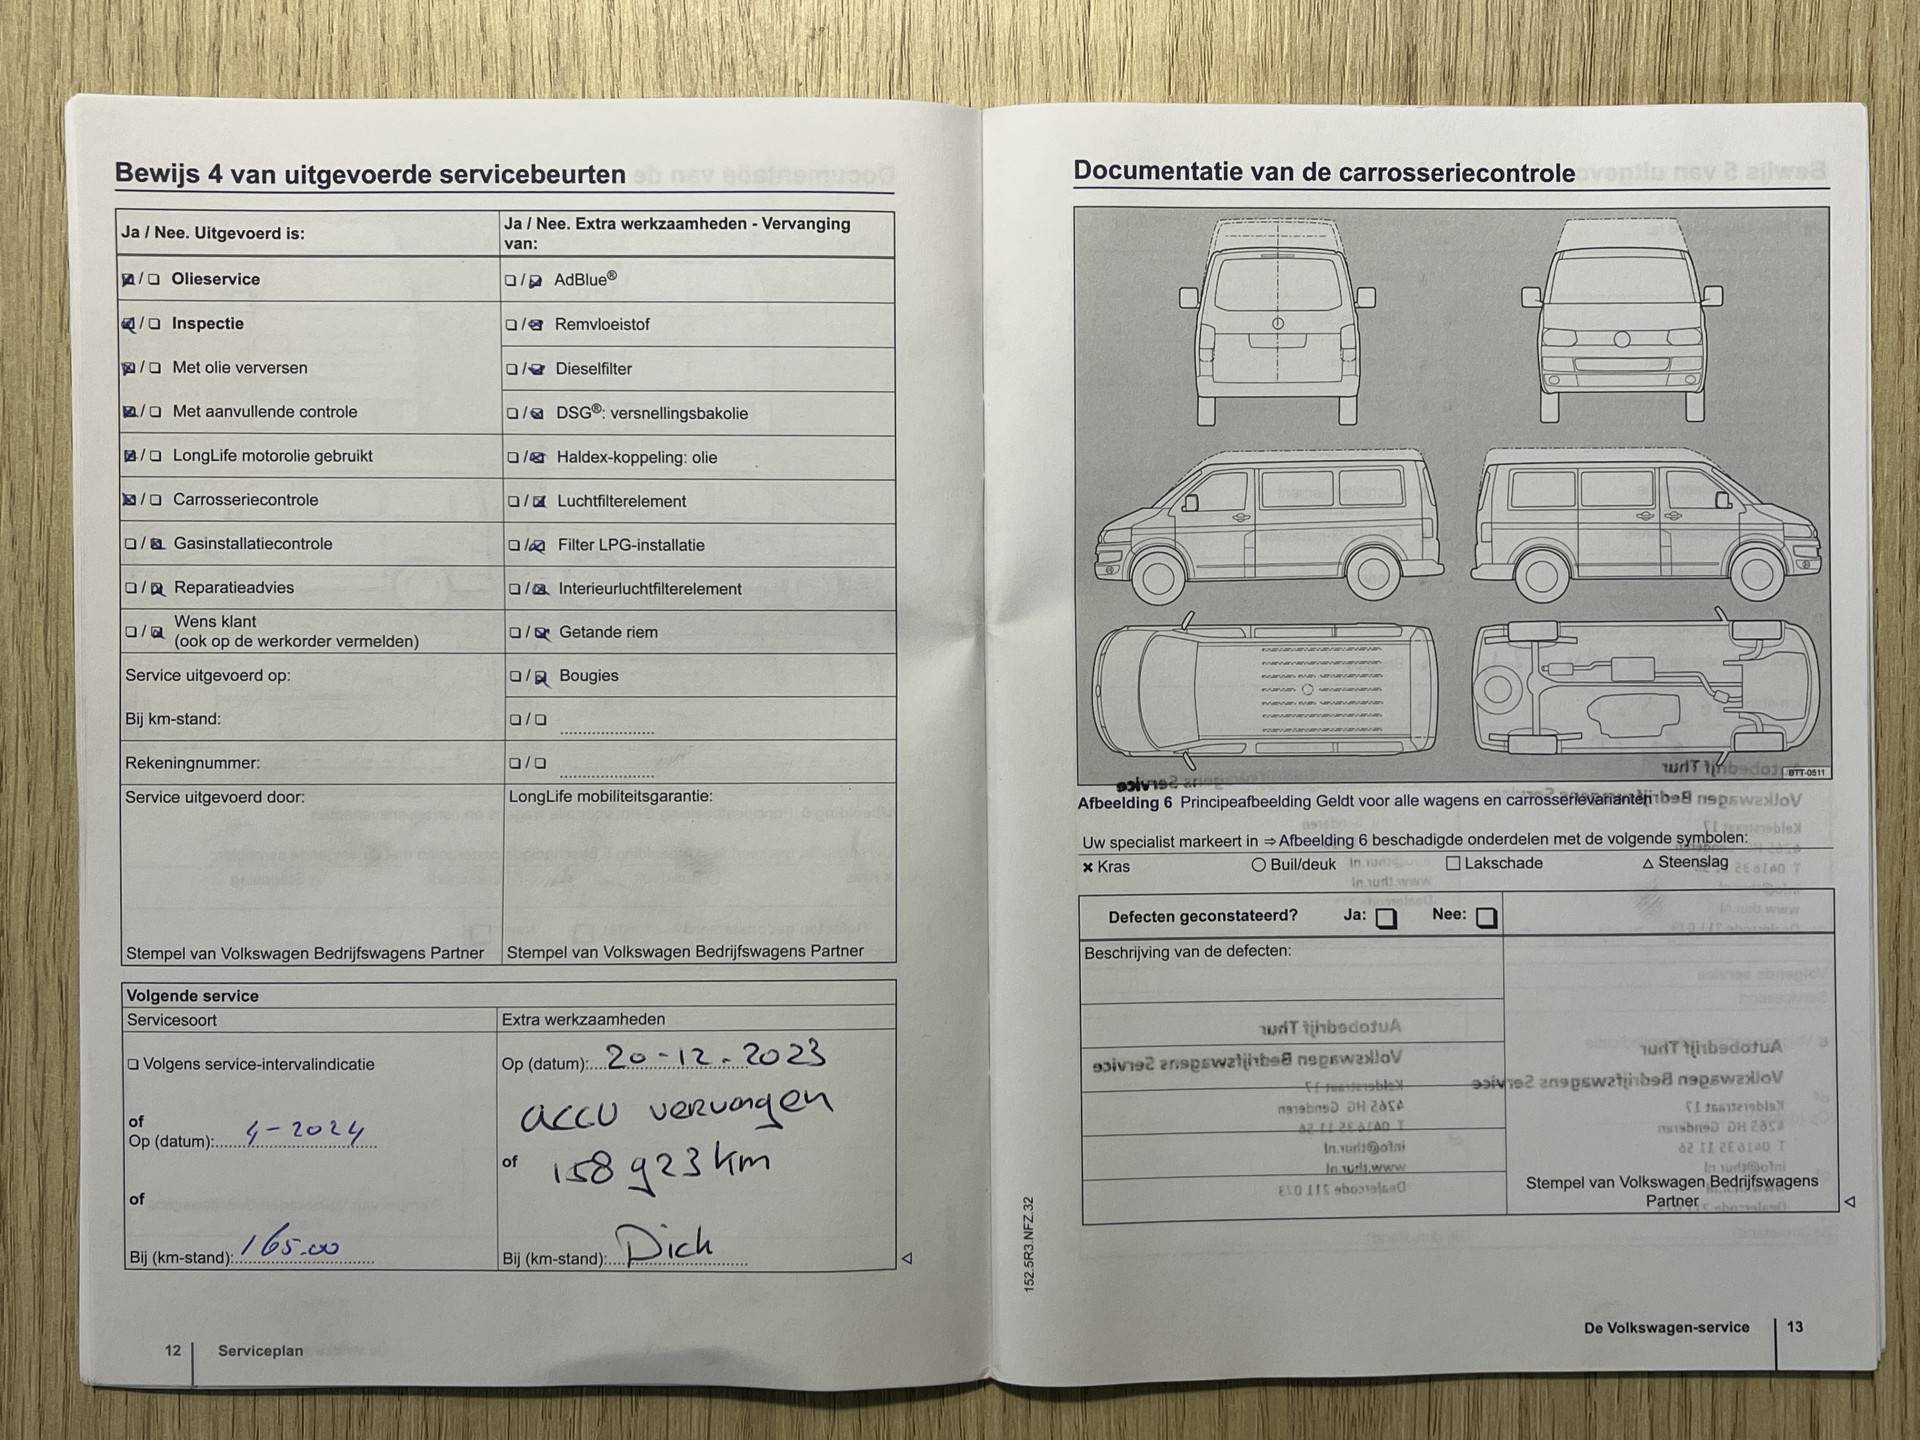 Bewijs 4 van uitgevoerde servicebeurten
Ja / Nee. Uitgevoerd is:
Ja / Nee. Extra werkzaamheden - Vervanging van:
Olieservice
AdBlue®
Inspectie
Remvloeistof
Met olie verversen
Dieselfilter
Met aanvullende controle
DSG®: versnellingsbakolie
LongLife motorolie gebruikt
Haldex-koppeling: olie
Carrosseriecontrole
Luchtfilterelement
Gasinstallatiecontrole
Filter LPG-installatie
Reparatieadvies
Interieurluchtfilterelement
Wens klant
(ook op de werkorder vermelden)
Getande riem
Service uitgevoerd op:
Bougies
Bij km-stand:
Rekeningnummer:
Service uitgevoerd door:
LongLife mobiliteitsgarantie:
Stempel van Volkswagen Bedrijfswagens Partner
Stempel van Volkswagen Bedrijfswagens Partner
Volgende service
Servicesoort
Extra werkzaamheden
Volgens service-intervalindicatie
of
Op (datum): 4-2024
of
Bij (km-stand): 165.00
Op (datum): 20-12-2023
accu vervangen
of 158923 km
Bij (km-stand): Dick
12 Serviceplan
Documentatie van de carrosseriecontrole
BTT-0511
Afbeelding 6 Principeafbeelding Geldt voor alle wagens en carrosserievarianten
Uw specialist markeert in ⇒ Afbeelding 6 beschadigde onderdelen met de volgende symbolen:
Kras
Buil/deuk
Lakschade
Steenslag
Defecten geconstateerd? Ja: Nee:
Beschrijving van de defecten:
Stempel van Volkswagen Bedrijfswagens
Partner
152.5R3.NFZ.32
De Volkswagen-service 13